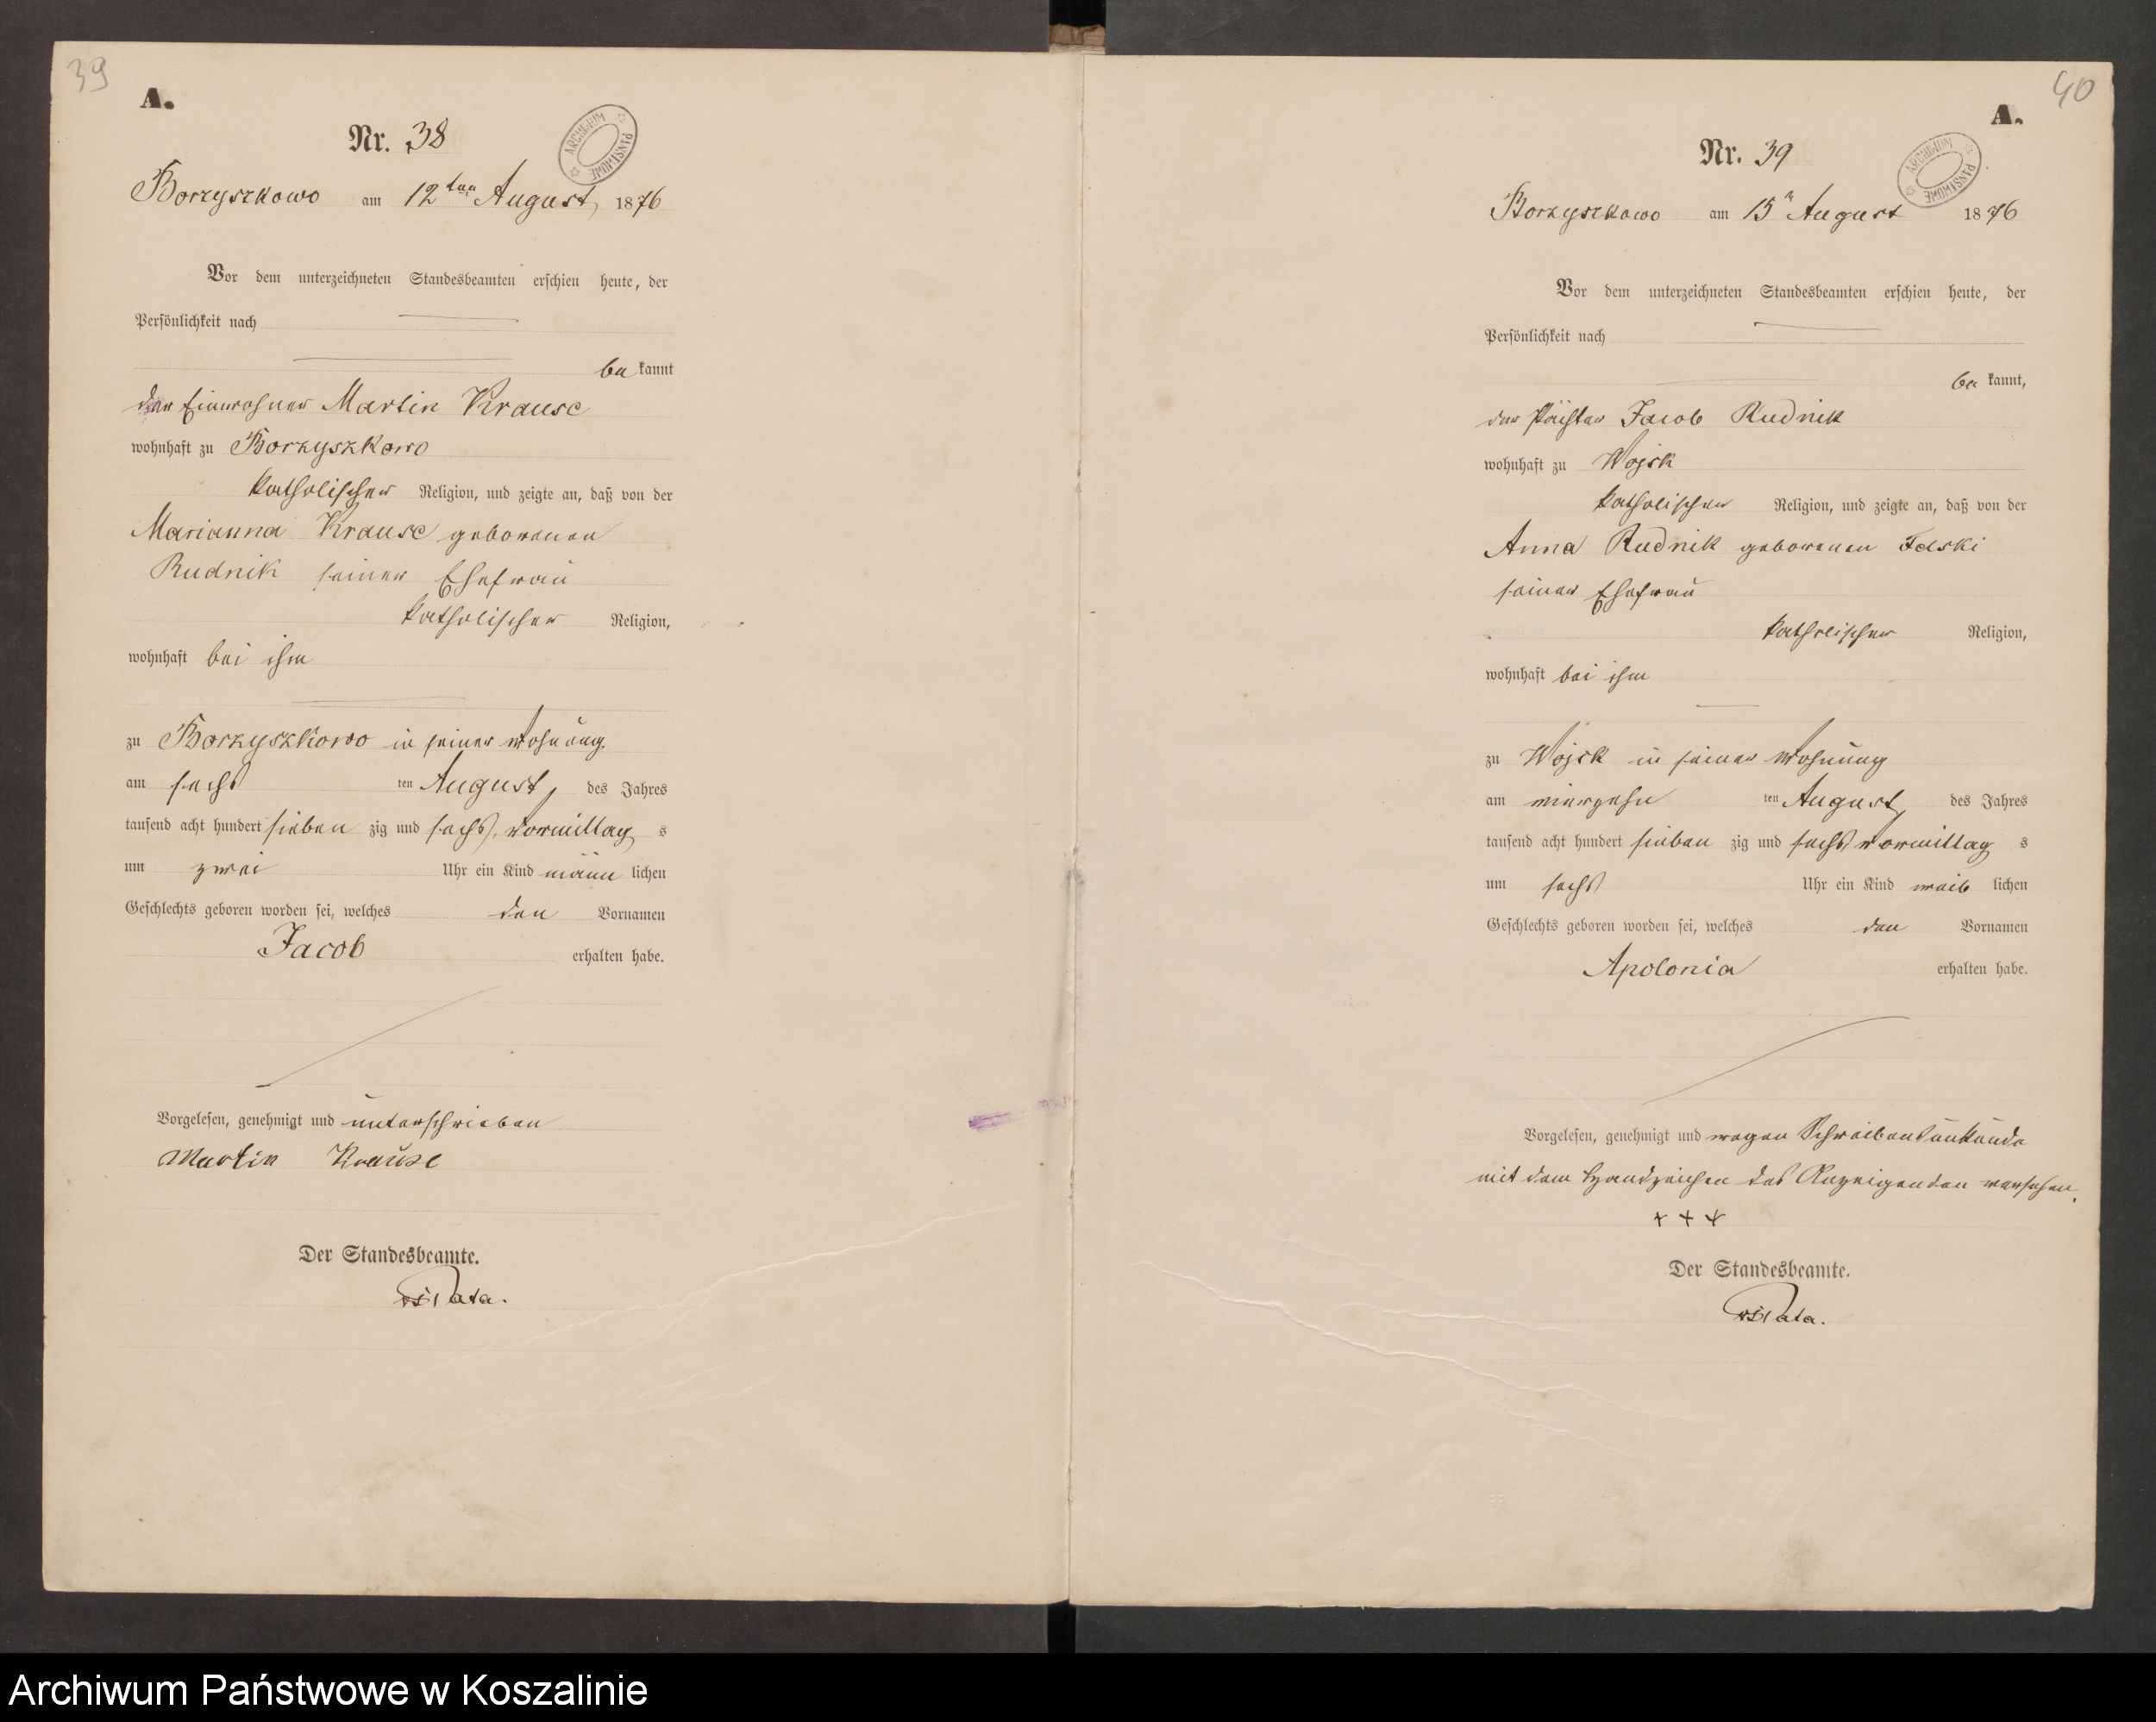 39
A.
ARCHIWUM PAŃSTWOWE
Nr. 38
Borzyszkowo am 12ten August, 1876
Vor dem unterzeichneten Standesbeamten erschien heute, der
Persönlichkeit nach
bekannt
der Einwohner Martin Krause
wohnhaft zu Borzyszkowo
katholischer Religion, und zeigte an, daß von der
Marianna Krause geborenen
Rudnik seiner Ehefrau
katholischer Religion,
wohnhaft bei ihm
zu Borzyszkowo in seiner Wohnung.
am sechs ten August, des Jahres
tausend acht hundert sieben zig und sechs, Vormittag s
um zwei Uhr ein Kind männ lichen
Geschlechts geboren worden sei, welches den Vornamen
Jacob erhalten habe.
Vorgelesen, genehmigt und unterschrieben
Martin Krause
Der Standesbeamte.
40
A.
ARCHIWUM PAŃSTWOWE
Nr. 39
Borzyszkowo am 15n August 1876
Vor dem unterzeichneten Standesbeamten erschien heute, der
Persönlichkeit nach
bekannt,
der Pächter Jacob Rudnik
wohnhaft zu Wojsk
katholischer Religion, und zeigte an, daß von der
Anna Rudnik geborenen
seiner Ehefrau
katholischer Religion,
wohnhaft bei ihm
zu Wojsk in seiner Wohnung
am vierzehn ten August, des Jahres
tausend acht hundert sieben zig und sechs, Vormittag s
um sechs Uhr ein Kind weib lichen
Geschlechts geboren worden sei, welches den Vornamen
Apolonia erhalten habe.
Vorgelesen, genehmigt und wegen Schreibensunkunde
mit dem Handzeichen des Anzeigenden versehen.
+ + +
Der Standesbeamte.
Archiwum Państwowe w Koszalinie